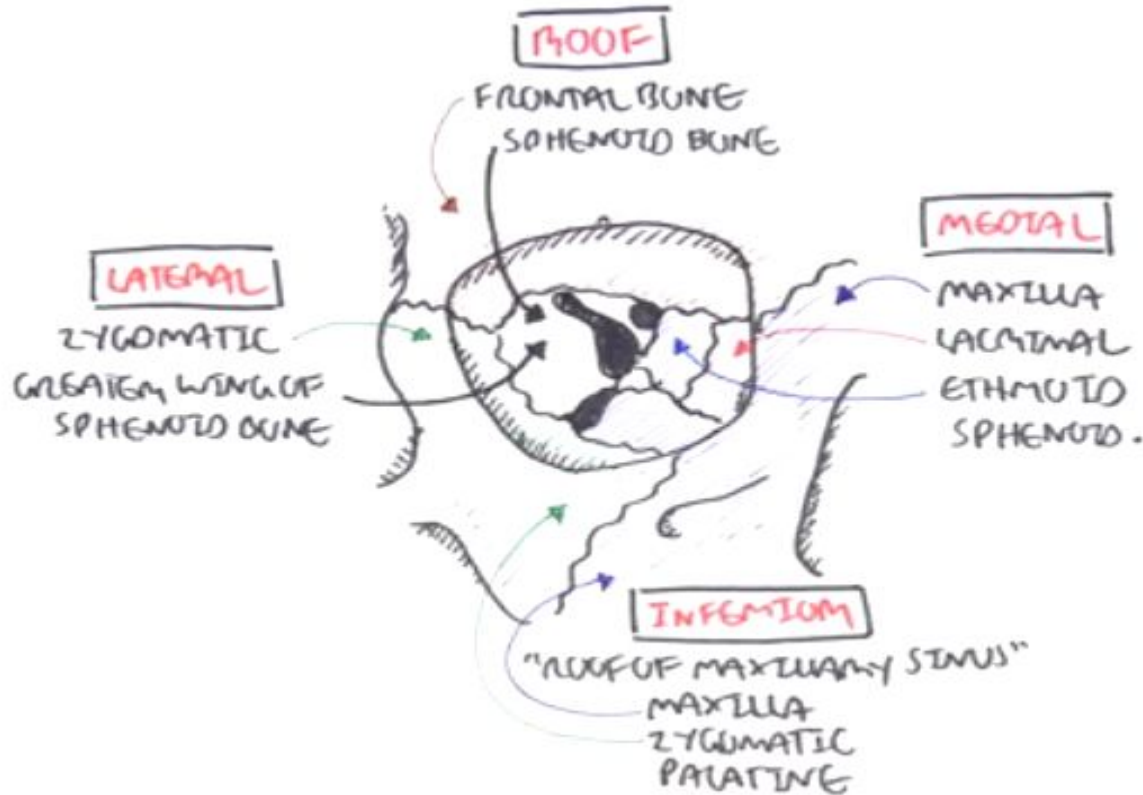 ROOF
FRONTAL BONE
SPHENOID BONE
LATERAL
ZYGOMATIC
GREATER WING OF
SPHENOID BONE
MEDIAL
MAXILLA
LACRIMAL
ETHMOID
SPHENOID.
INFERIOR
"ROOF OF MAXILLARY SINUS"
MAXILLA
ZYGOMATIC
PALATINE